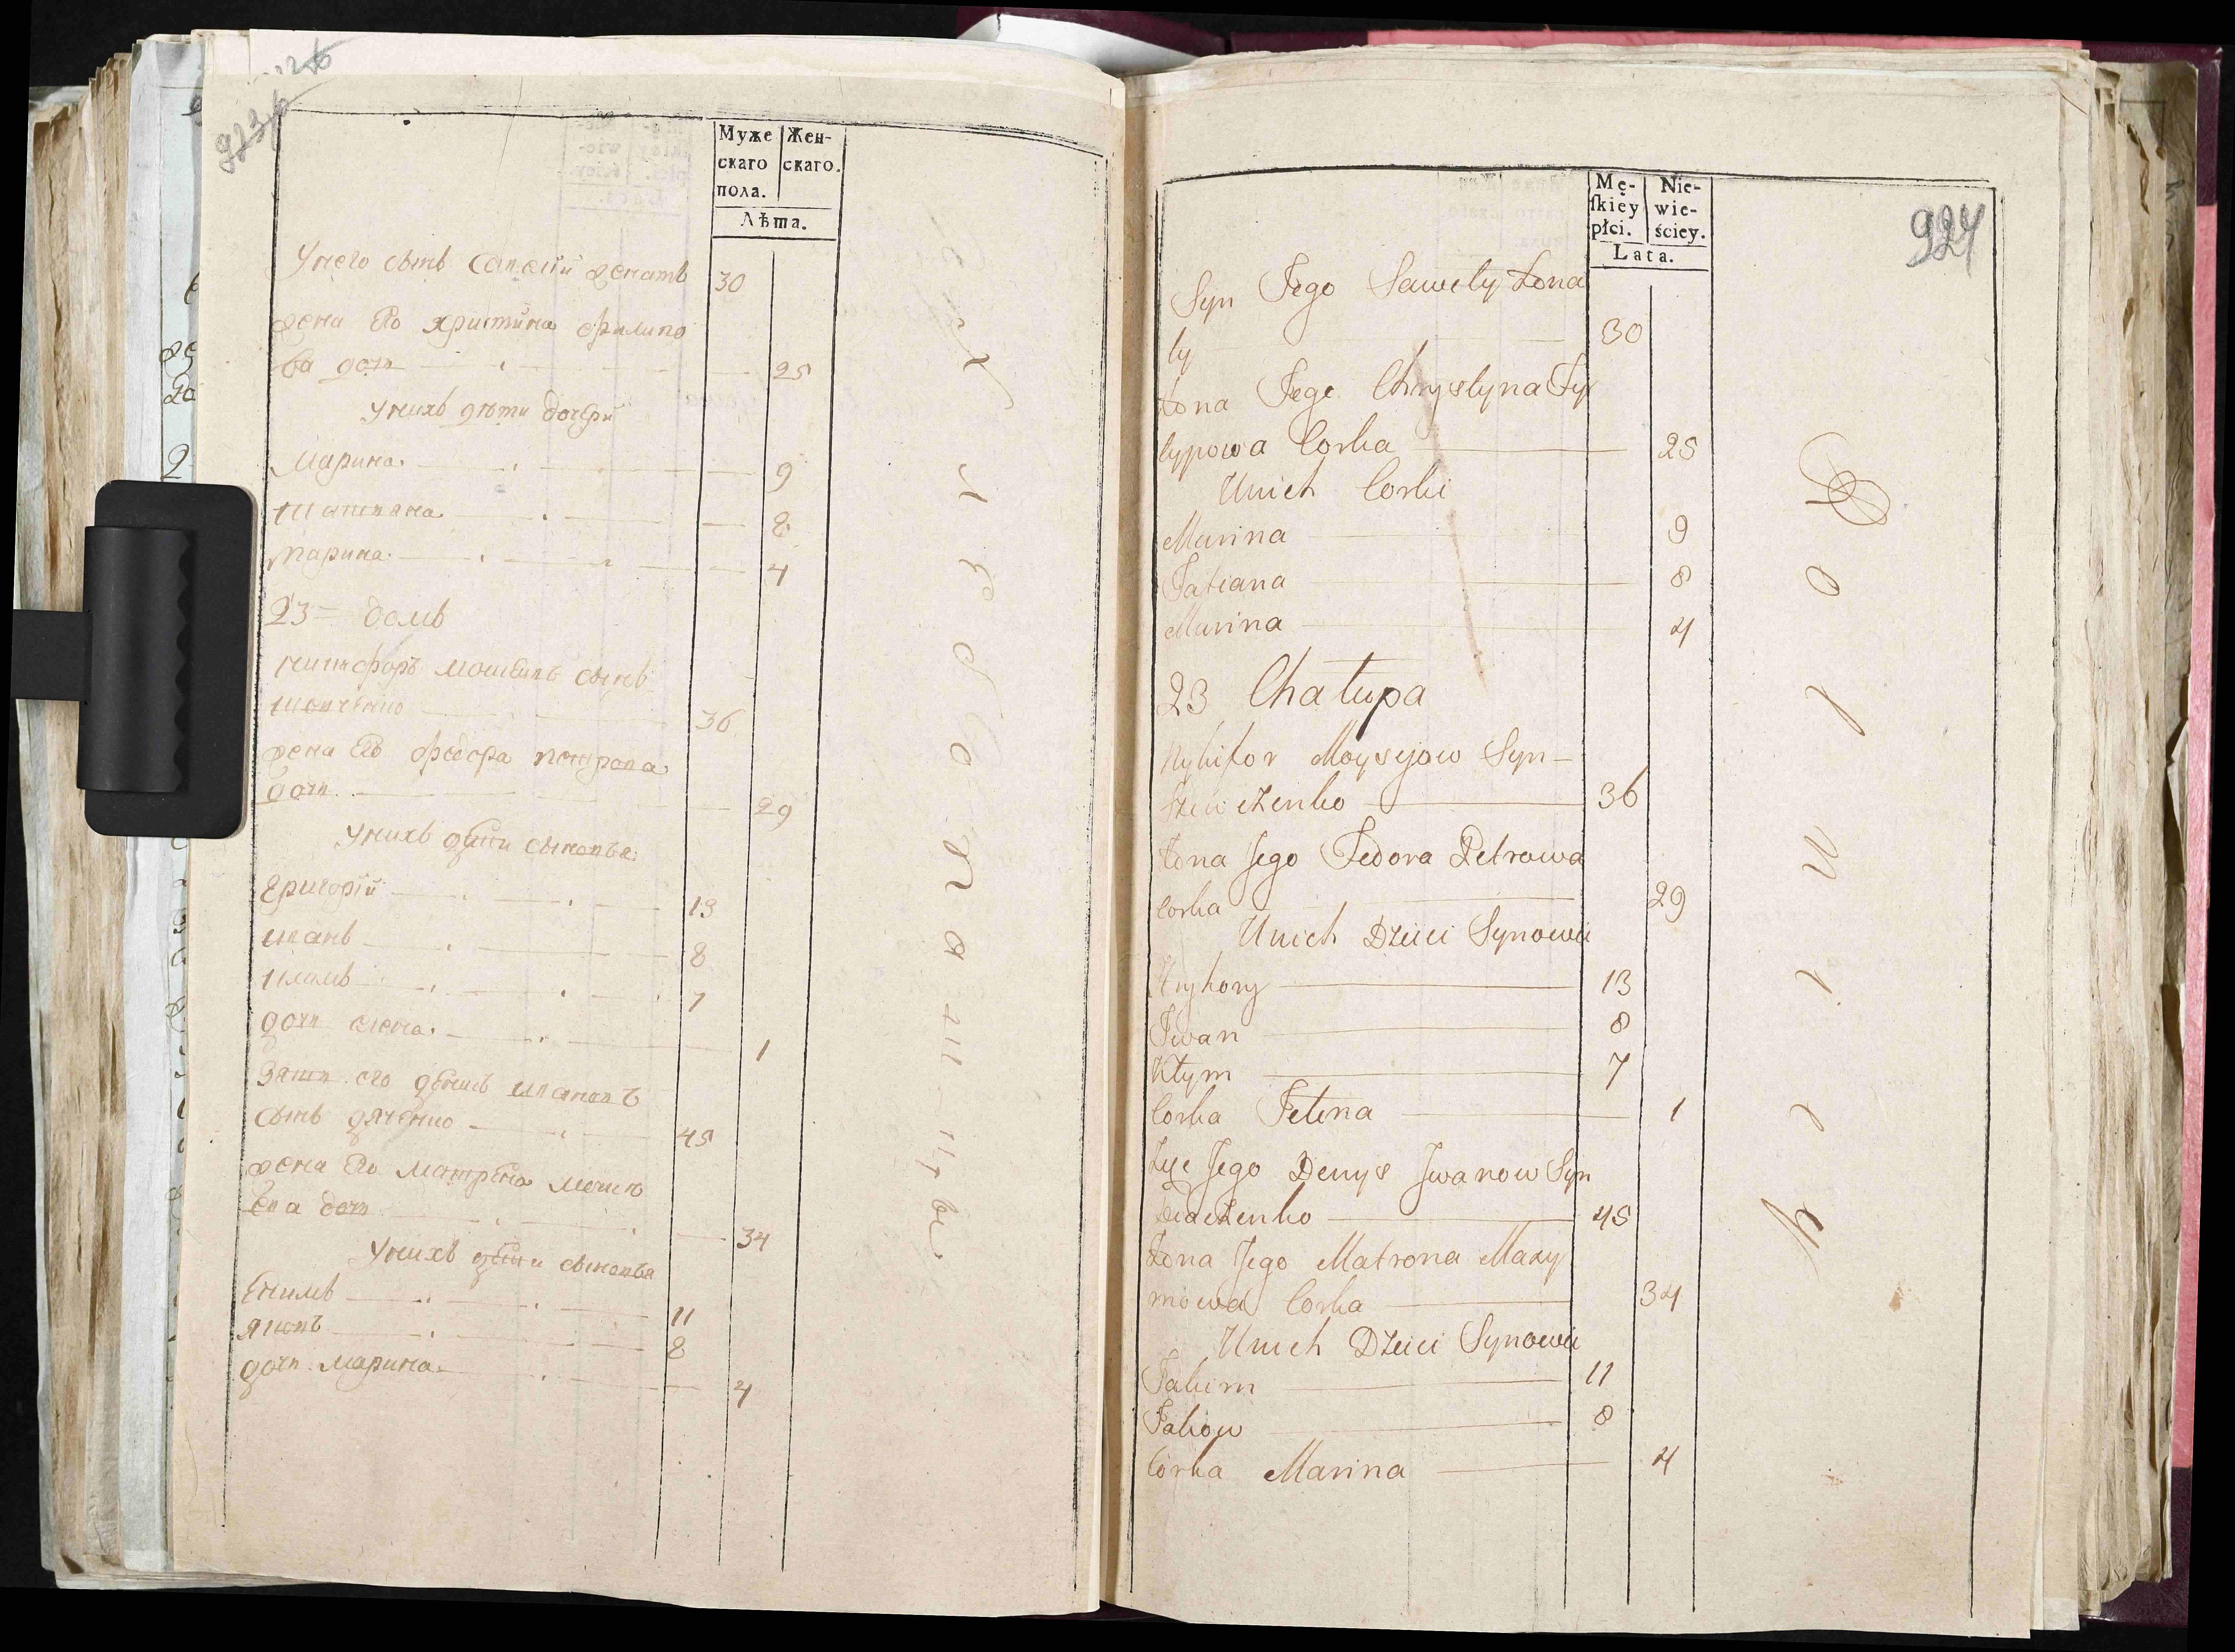 923
Муже Жен-
скаго скаго.
пола.
Лѣта.
Унего сынъ Савелій женатъ 30
жена Его Христина Филипо
ва дочь 25
Унихъ дѣти дочери
Марина 9
Татияна 8
Марина 4
23 домъ
Никифоръ Моисѣивъ сынъ
Шевченко 36
жена Его Федора Петрова
дочь 29
Унихъ дѣти сыновья
Григорій 13
Иванъ 8
Климъ 7
дочь 1
Зять его Денисъ Ивановъ
сынъ Дяченко 45
жена Его Матрена
ва дочь 34
Унихъ дѣти сыновья
Екимъ 11
Яковъ 8
дочь Марина 4
924
Mę- Nie-
ſkiey wie-
płci. ściey.
Lata.
Syn Jego Sawely Żona
ty 30
Żona Jego Chrystyna Fy
lypowa Corka 25
Unich Corki
Marina 9
Tatiana 8
Marina 4
23 Chałupa
Nykifor Moysejow Syn
Szewczenko 36
Żona Jego Fedora Petrowa
Corka 29
Unich Dzieci Synowie
Hryhory 13
Iwan 8
Kłym 7
Corka 1
Zięć Jego Denys Jwanow Syn
Diaczenko 45
Żona Jego Matrona Maxy
mowa Corka 34
Unich Dzieci Synowie
Jakim 11
Jakow 8
Corka Marina 4